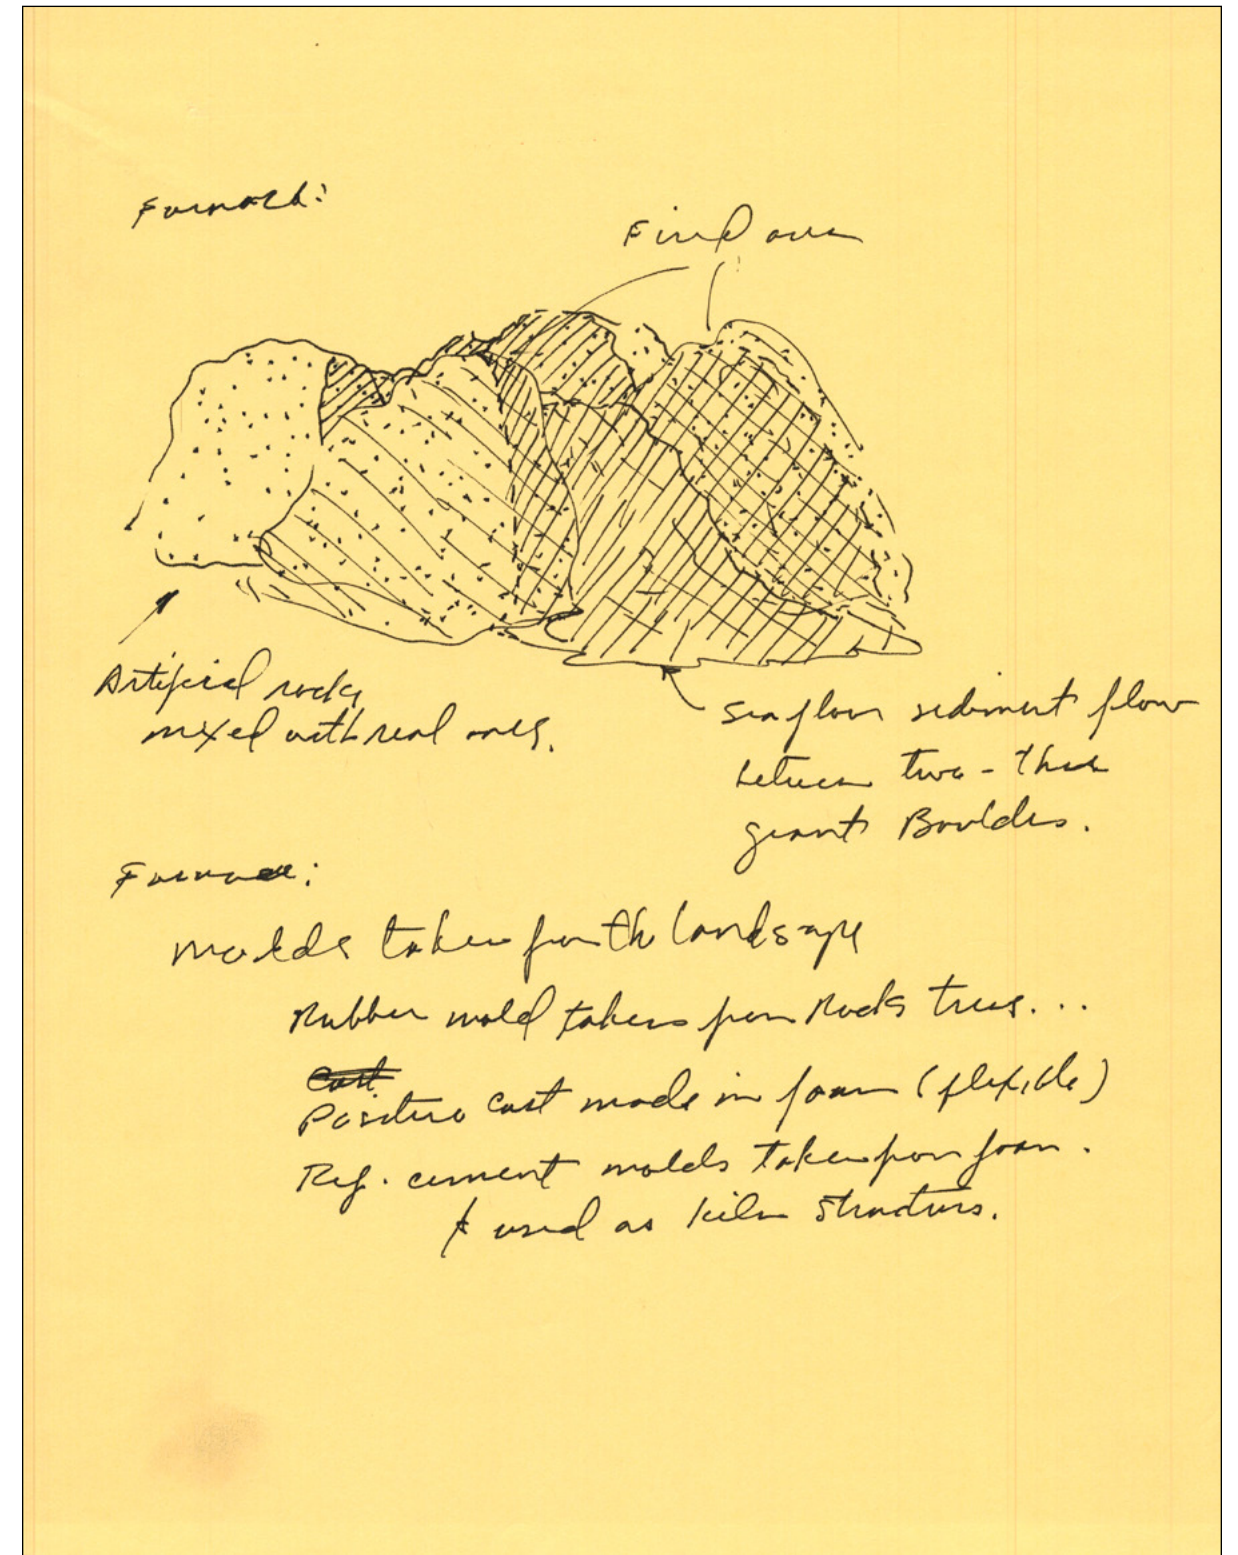 Furnace:
Fired area
Artificial rocks
mixed with real ones.
Sea floor sediment flow
between two - three
giant Boulders.
Furnace:
molds taken from the landscape
Rubber mold taken from Rocks trees...
Cast
Positive cast made in foam (flexible)
Ref. cement molds taken from foam.
& used as kiln structures.